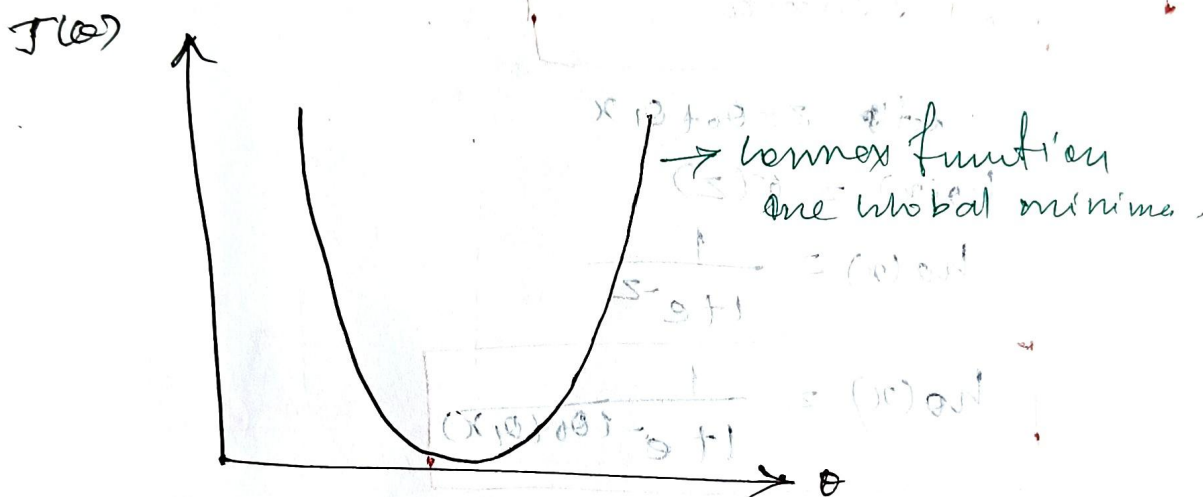 J(θ)
→ convex function
one global minima.
θ